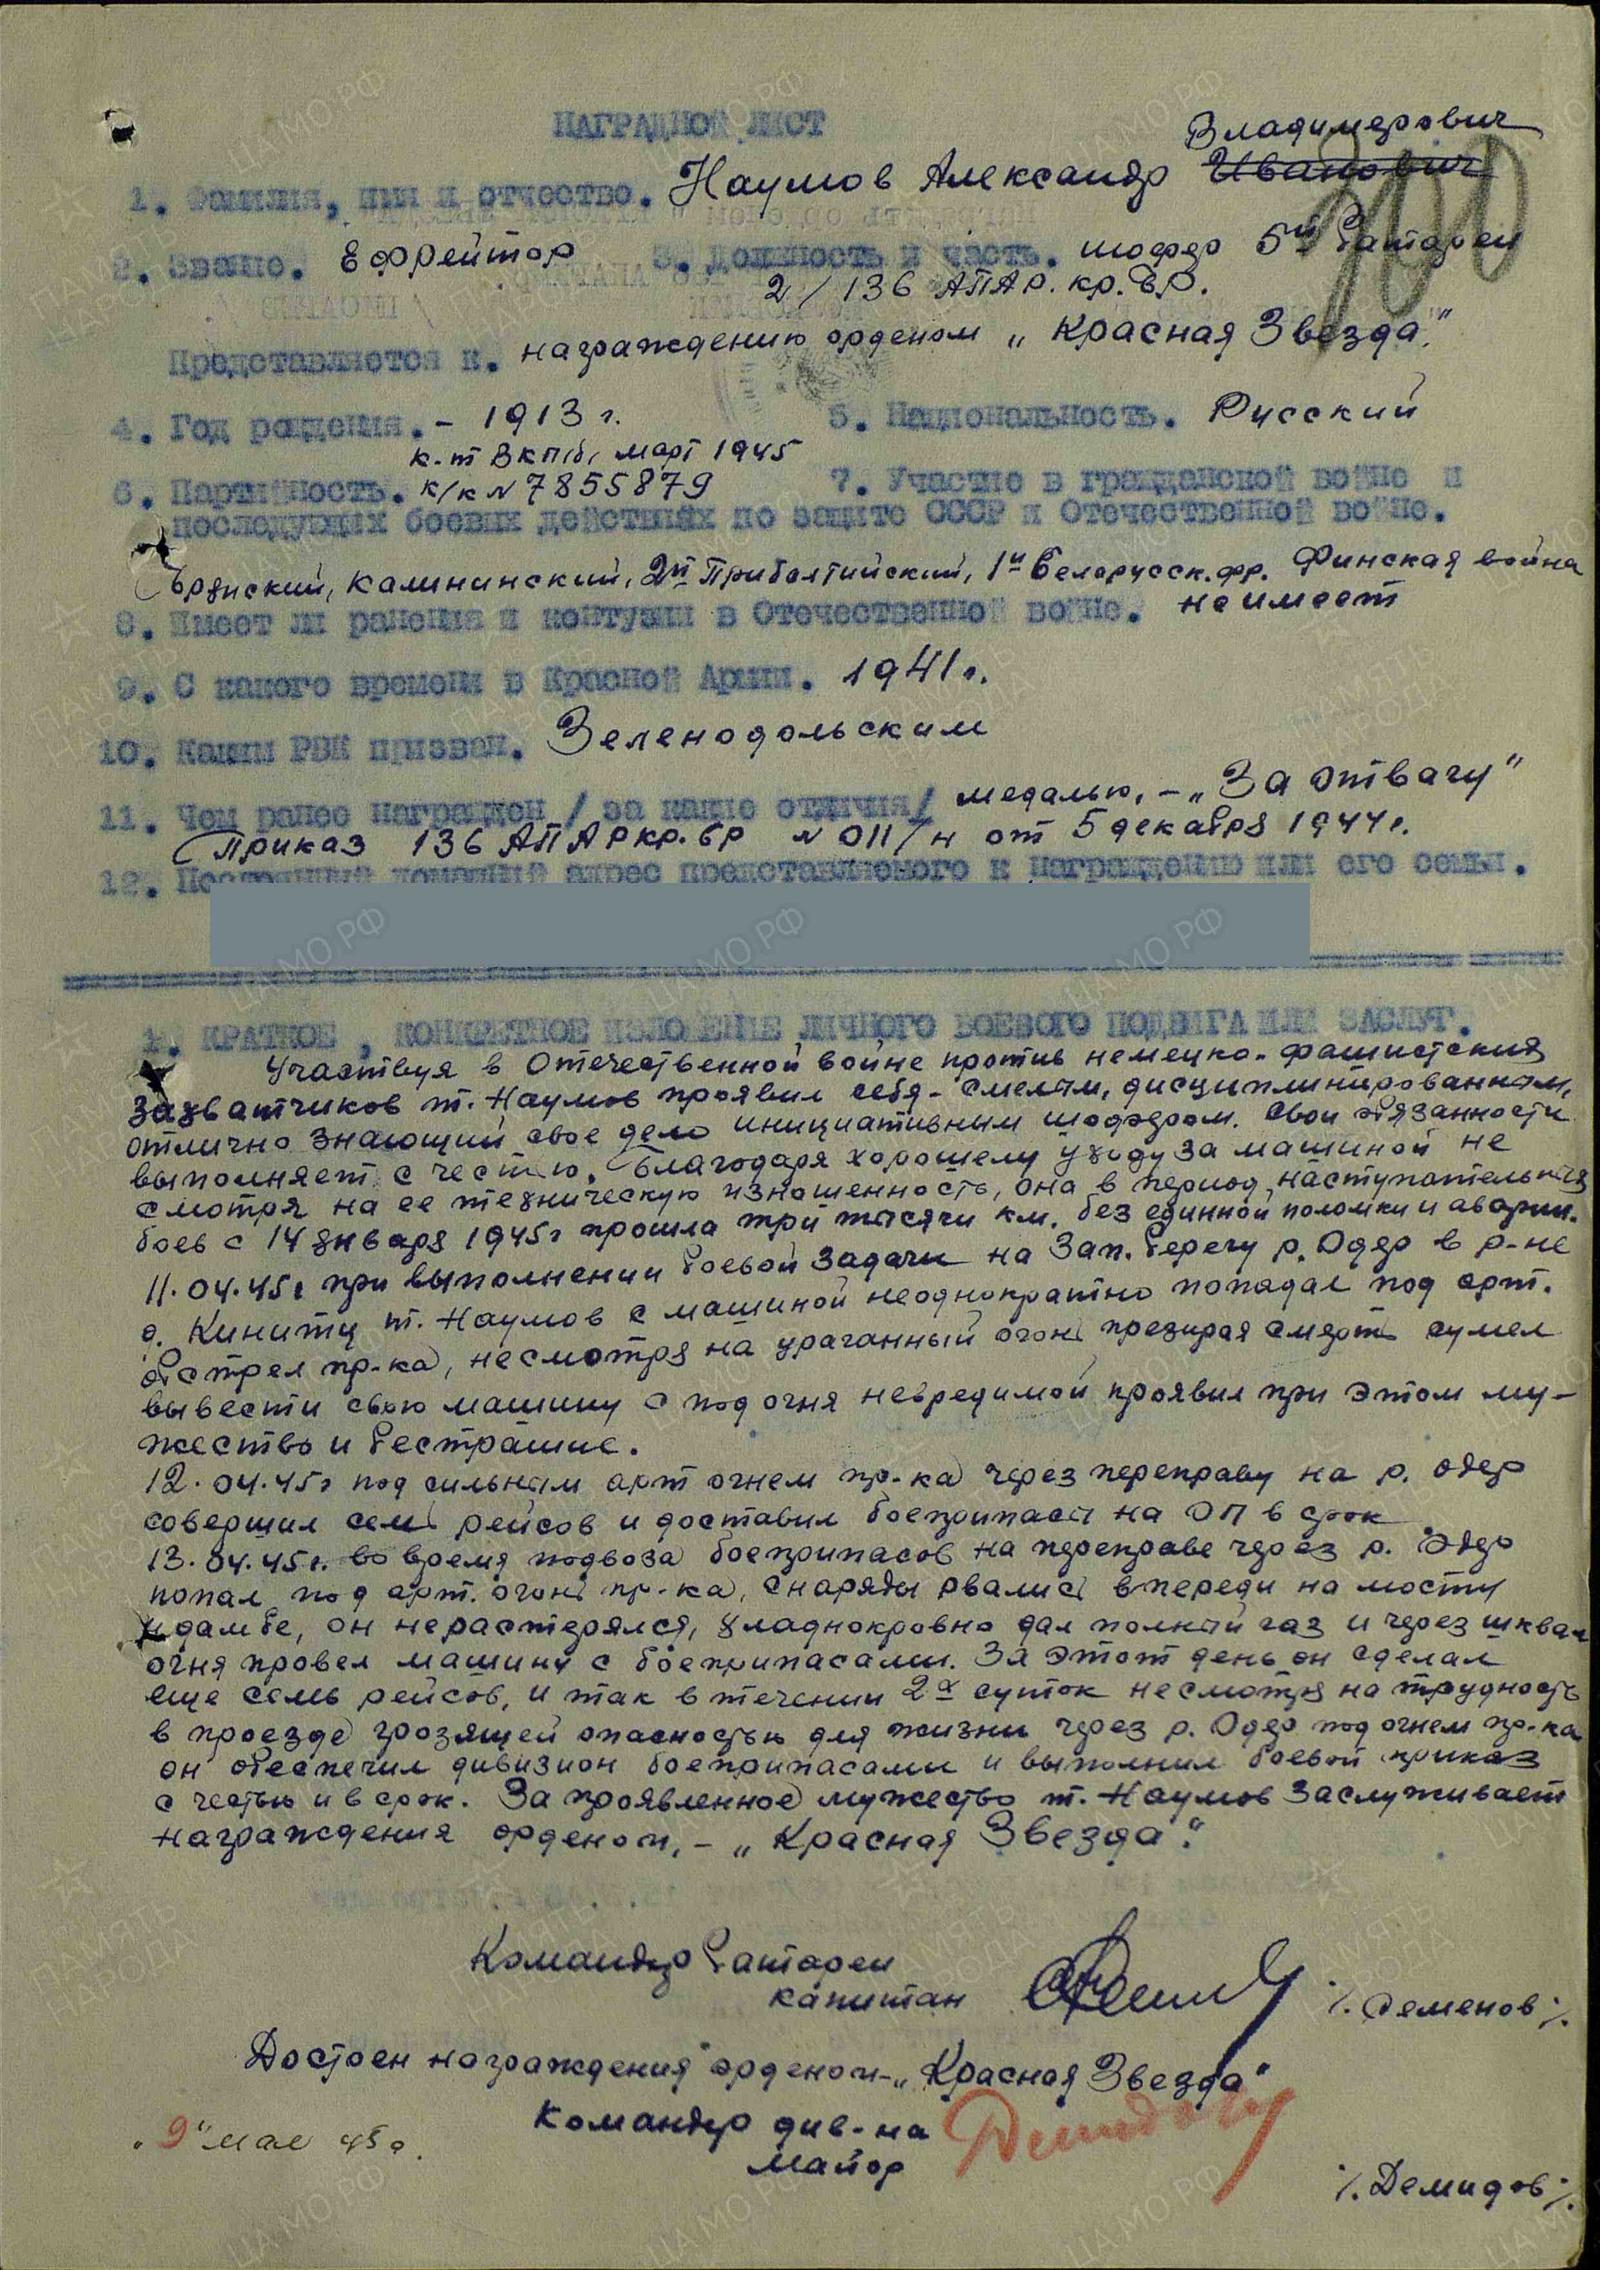 НАГРАДНОЙ ЛИСТ
Владимерович
1. Фамилия, имя и отчество. Наумов Александр Иванович
2. Звание. Ефрейтор 3. Должность и часть. шофер 5й батареи
2/136 АПАР. кр. БР.
Представляется к. награждению орденом „Красная Звезда."
4. Год рождения. - 1913 г. 5. Национальность. Русский
к-т ВКП/б/ март 1945
6. Партийность. к/к № 7855879 7. Участие в гражданской войне и
последующих боевых действиях по защите СССР и Отечественной войне.
Брянский, Калининский, 2й Прибалтийский, 1й Белорусск. фр. Финская война
8. Имеет ли ранения и контузии в Отечественной войне. не имеет
9. С какого времени в Красной Армии. 1941 г.
10. Каким РВК призван. Зеленодольским
11. Чем ранее награжден / за какие отличия/ медалью, - „За отвагу"
Приказ 136 АПАРкр. бр № 011/н от 5 декабря 1944 г.
12. Постоянный домашний адрес представляемого к награждению или его семьи.
1. КРАТКОЕ, КОНКРЕТНОЕ ИЗЛОЖЕНИЕ ЛИЧНОГО БОЕВОГО ПОДВИГА ИЛИ ЗАСЛУГ.
Участвуя в Отечественной войне против немецко-фашистских
захватчиков т. Наумов проявил себя - смелым, дисциплинированным,
отлично знающий свое дело инициативным шофэром. Свои обязанности
выполняет с честью. Благодаря хорошему уходу за машиной не
смотря на ее техническую изношенность, она в период наступательных
боев с 14 января 1945 г прошла три тысячи км. без единной поломки и аварии.
11.04.45 г при выполнении боевой задачи на Зап. берегу р. Одер в р-не
г. Киниту т. Наумов с машиной неоднократно попадал под арт.
обстрел пр-ка, несмотря на ураганный огонь презирая смерть сумел
вывести свою машину с под огня невредимой проявил при этом му-
жество и бестрашие.
12.04.45 г под сильным арт огнем пр-ка через переправу на р. Одер
совершил семь рейсов и доставил боеприпасы на ОП в срок
13.04.45 г. во время подвоза боеприпасов на переправе через р. Одер
попал под арт. огонь пр-ка, снаряды рвались впереди на мосту
и дамбе, он нерастерялся, хладнокровно дал полный газ и через шквал
огня провел машину с боеприпасами. За этот день он сделал
еще семь рейсов, и так в течении 2х суток несмотря на трудность
в проезде грозящей опасностью для жизни через р. Одер под огнем пр-ка
он обеспечил дивизион боеприпасами и выполнил боевой приказ
с честью и в срок. За проявленное мужество т. Наумов заслуживает
награждения орденом, - „Красная Звезда".
Командир батареи
капитан /. Семенов /.
Достоен награждения орденом - „Красная Звезда"
Командир див-на
„9" мая 45 г.
майор
/. Демидов /.